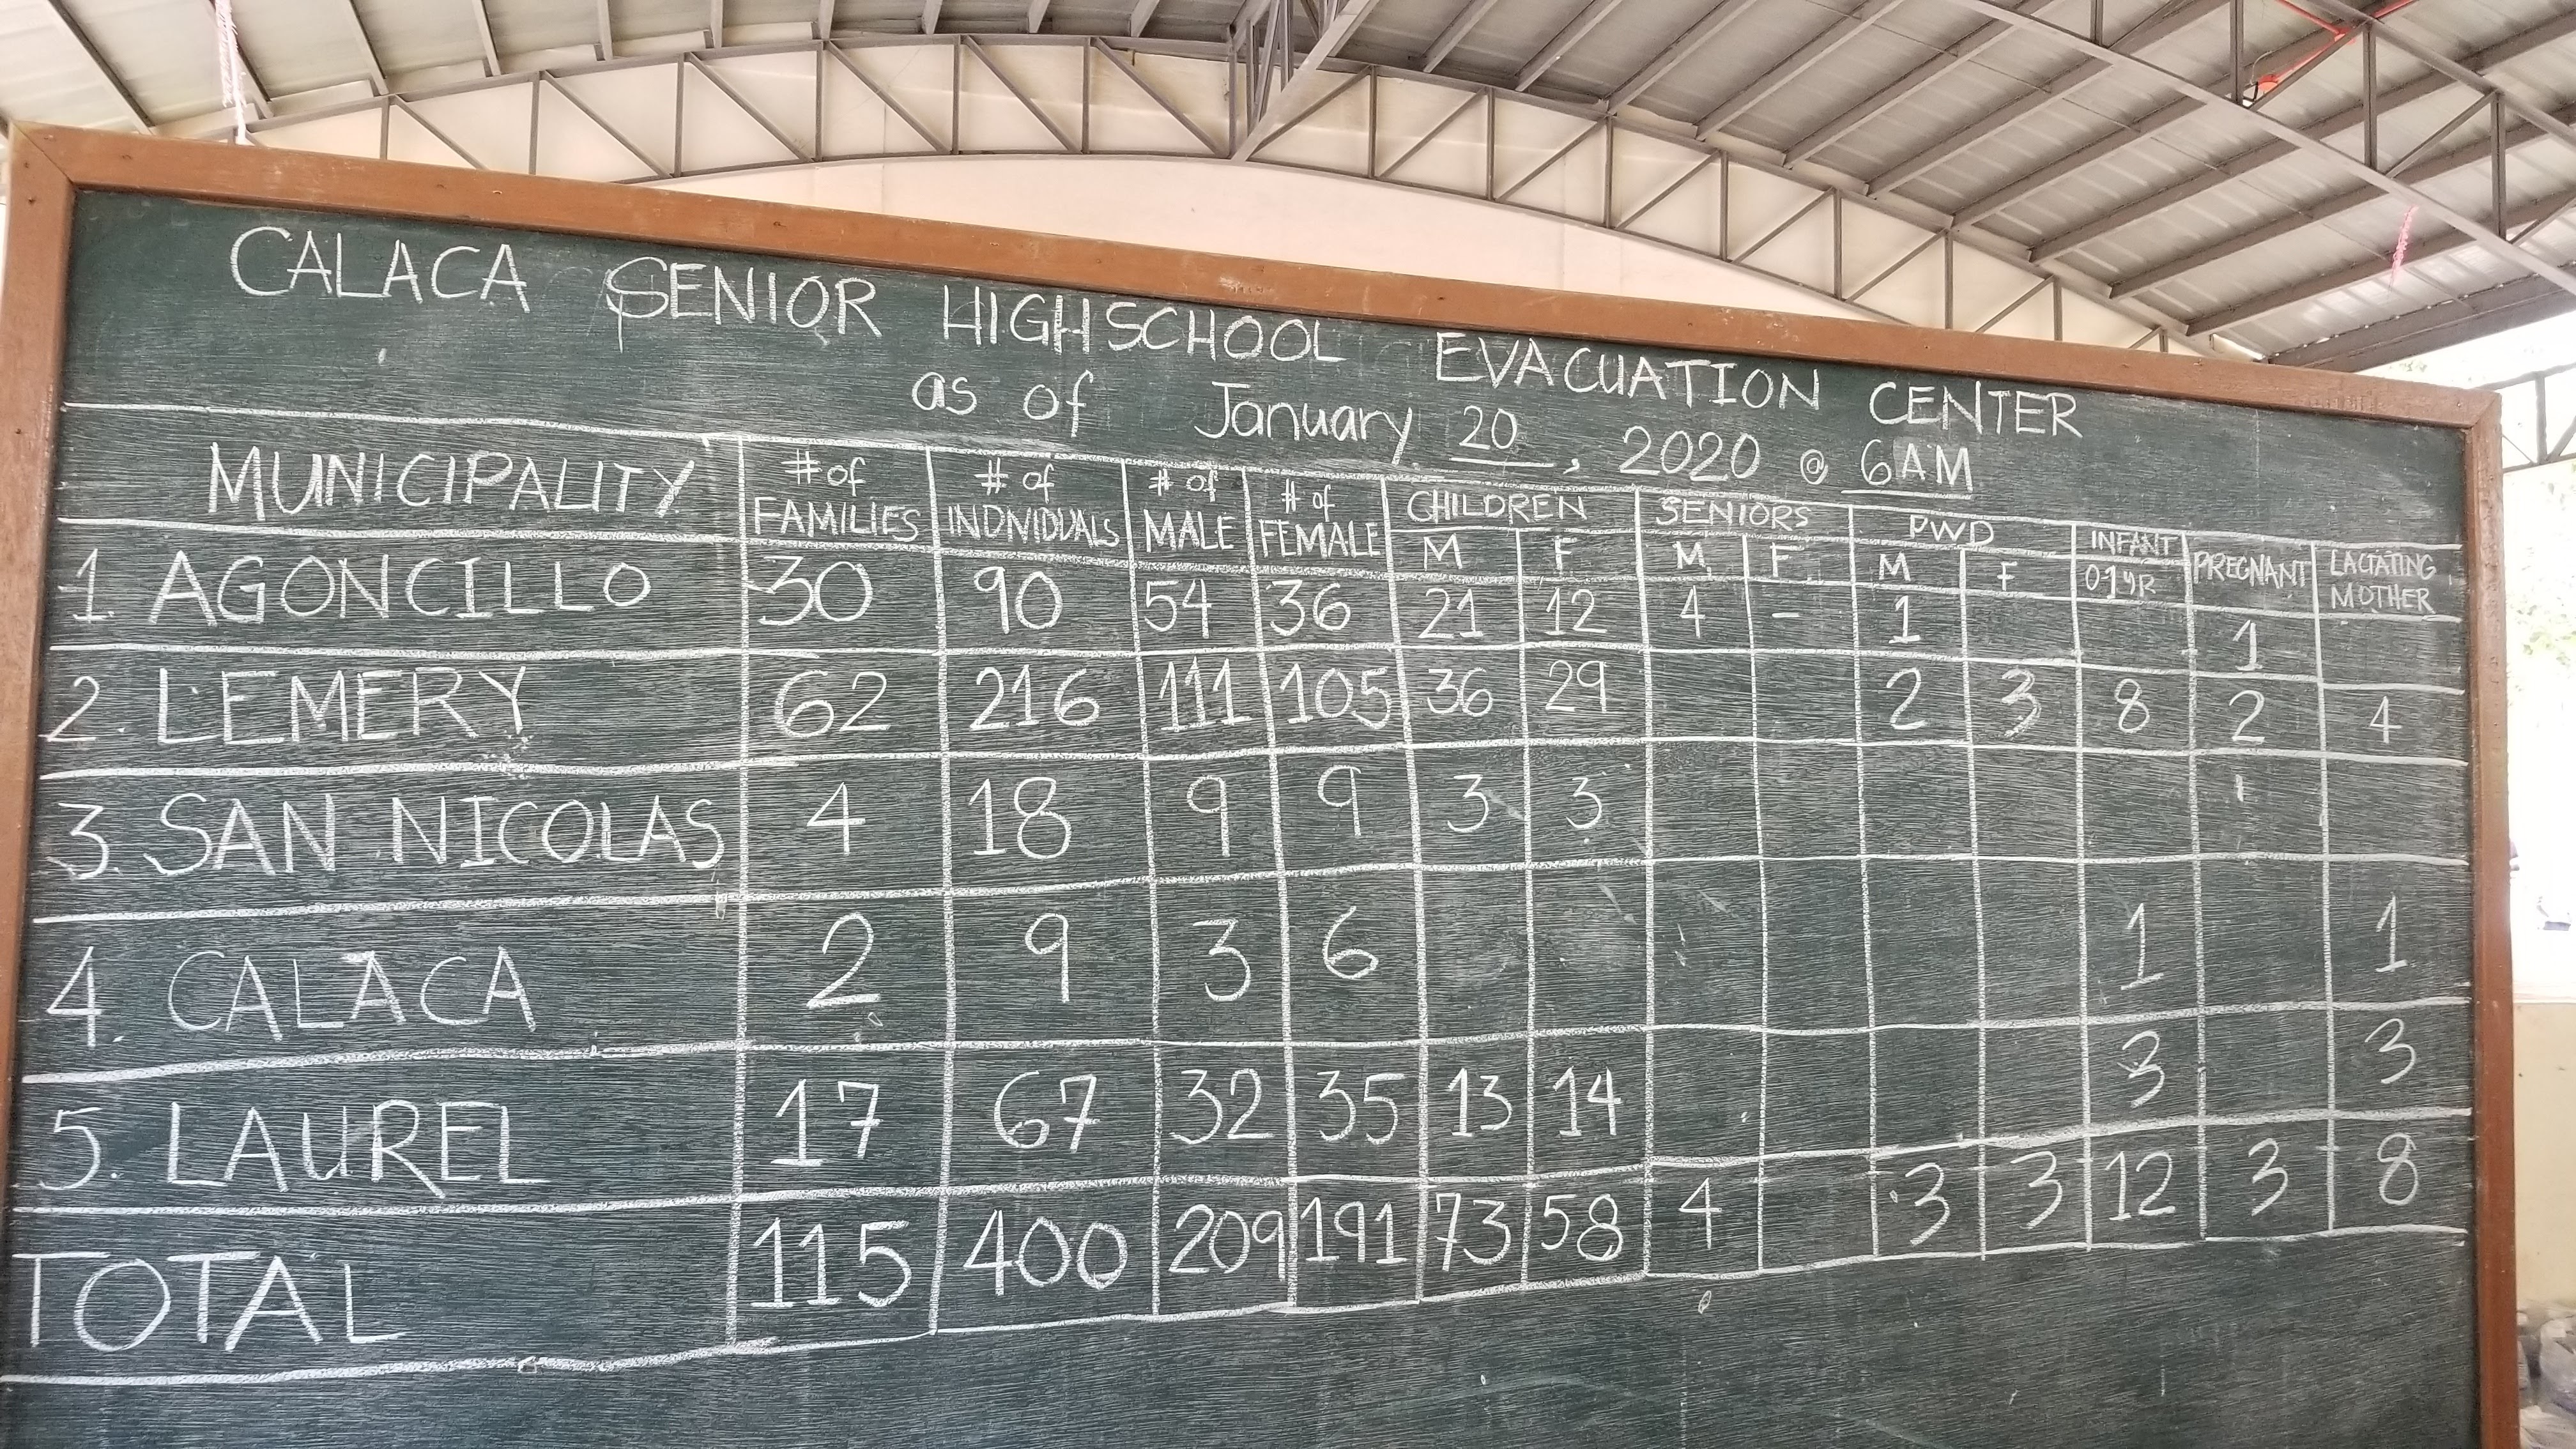 CALACA SENIOR HIGHSCHOOL EVACUATION CENTER
as of January 20, 2020 @ 6AM
MUNICIPALITY # of FAMILIES # of INDIVIDUALS # of MALE # of FEMALE CHILDREN M F SENIORS M F PWD M F INFANT 01yR PREGNANT LACTATING MOTHER
1. AGONCILLO 30 90 54 36 21 12 4 - 1 1
2. LEMERY 62 216 111 105 36 29 2 3 8 2 4
3. SAN NICOLAS 4 18 9 9 3 3
4. CALACA 2 9 3 6 1 1
5. LAUREL 17 67 32 35 13 14 3 3
TOTAL 115 400 209 191 73 58 4 3 3 12 3 8